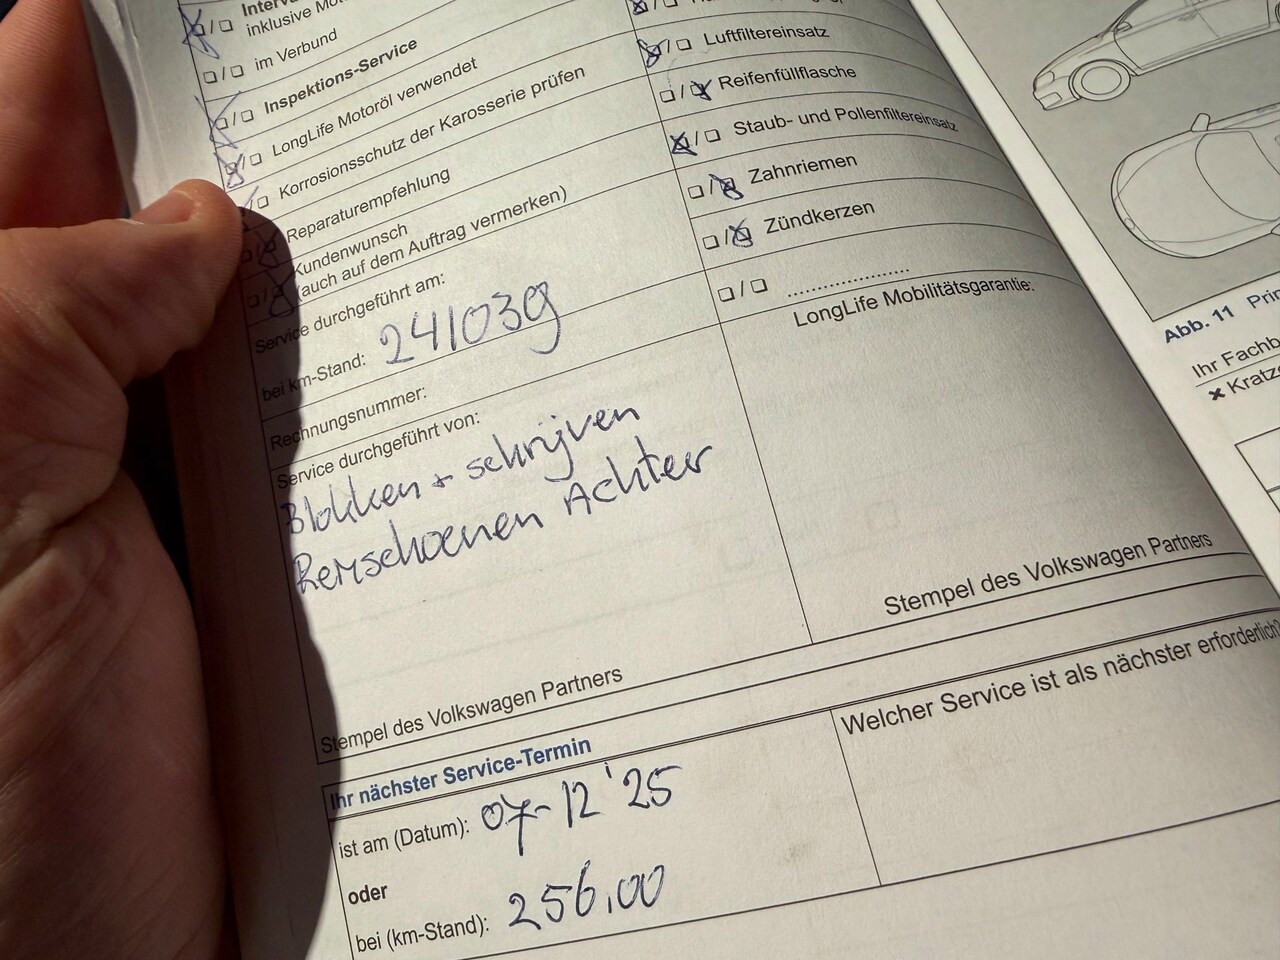 inklusive
im Verbund
Inspektions-Service
LongLife Motoröl verwendet
Korrosionsschutz der Karosserie prüfen
Reparaturempfehlung
Kundenwunsch
(auch auf dem Auftrag vermerken)
Luftfiltereinsatz
Reifenfüllflasche
Staub- und Pollenfiltereinsatz
Zahnriemen
Zündkerzen
....................
Service durchgeführt am:
bei km-Stand: 241039
Rechnungsnummer:
Service durchgeführt von:
Blokken + schrijven
Remschoenen Achter
Stempel des Volkswagen Partners
LongLife Mobilitätsgarantie:
Stempel des Volkswagen Partners
Ihr nächster Service-Termin
ist am (Datum): 07-12 '25
oder
bei (km-Stand): 256.00
Welcher Service ist als nächster erforderlich?
Abb. 11
Ihr